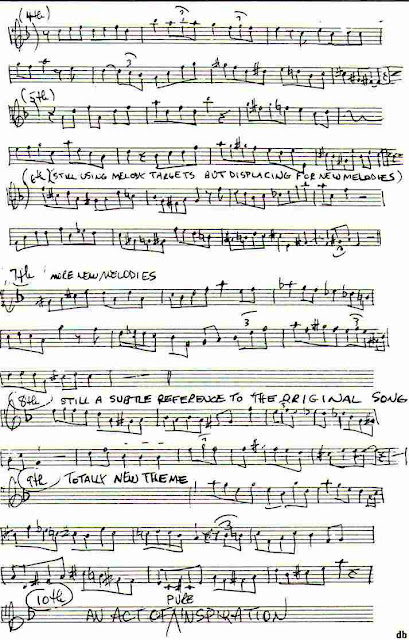 (4th)
3 3
3
(5th)
(6th) (STILL USING MELODIC TARGETS BUT DISPLACING FOR NEW MELODIES)
3
7th MORE NEW MELODIES
3 3
8th STILL A SUBTLE REFERENCE TO THE ORIGINAL SONG
9th TOTALLY NEW THEME
3
10th AN ACT OF PURE INSPIRATION
db